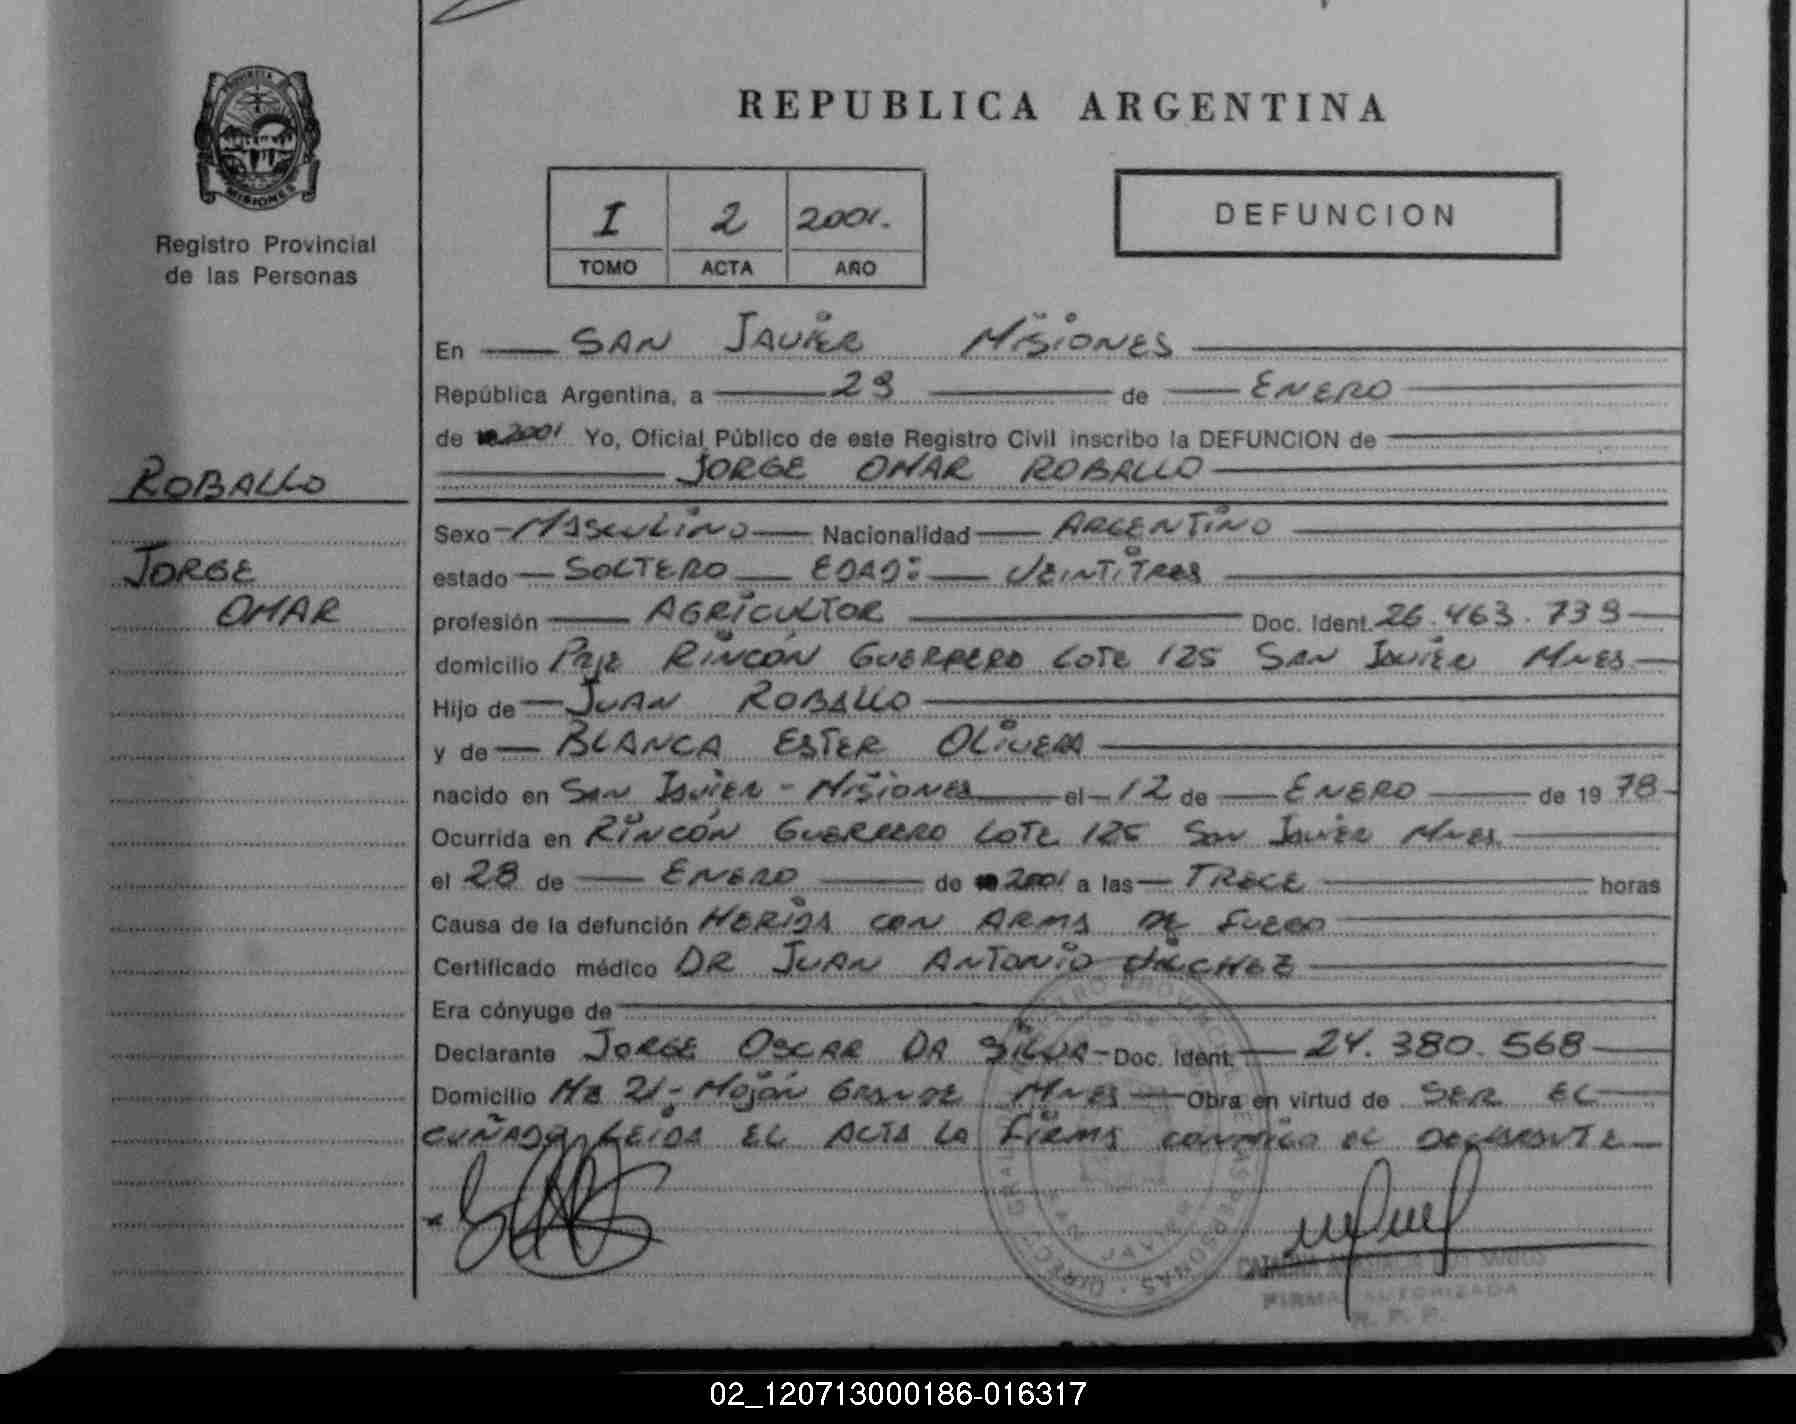 PROVINCIA DE
MISIONES
Registro Provincial
de las Personas
REPUBLICA ARGENTINA
I 2 2001.
TOMO ACTA AÑO
DEFUNCION
En SAN JAVIER MISIONES
República Argentina, a 29 de ENERO
de 2001 Yo, Oficial Público de este Registro Civil inscribo la DEFUNCION de
JORGE OMAR ROBALLO
ROBALLO
JORGE
OMAR
Sexo MASCULINO Nacionalidad ARGENTINO
estado SOLTERO EDAD: VEINTITRES
profesión AGRICULTOR Doc. Ident. 26.463.739
domicilio Pje RINCÓN GUERRERO LOTE 125 SAN JAVIER MNES
Hijo de JUAN ROBALLO
y de BLANCA ESTER OLIVERA
nacido en SAN JAVIER - MISIONES el 12 de ENERO de 1978
Ocurrida en RINCÓN GUERRERO LOTE 125 SAN JAVIER MNES
el 28 de ENERO de 2001 a las TRECE horas
Causa de la defunción HERIDA CON ARMA DE FUEGO
Certificado médico DR JUAN ANTONIO
Era cónyuge de
Declarante JORGE OSCAR DA SILVA Doc. Ident. 24.380.568
Domicilio 21 - Mojón GRANDE MNES Obra en virtud de SER EL
CUÑADO LEIDA EL ACTA LA FIRMA CONMIGO EL DECLARANTE
FIRMA AUTORIZADA
R. P. P.
02_120713000186-016317